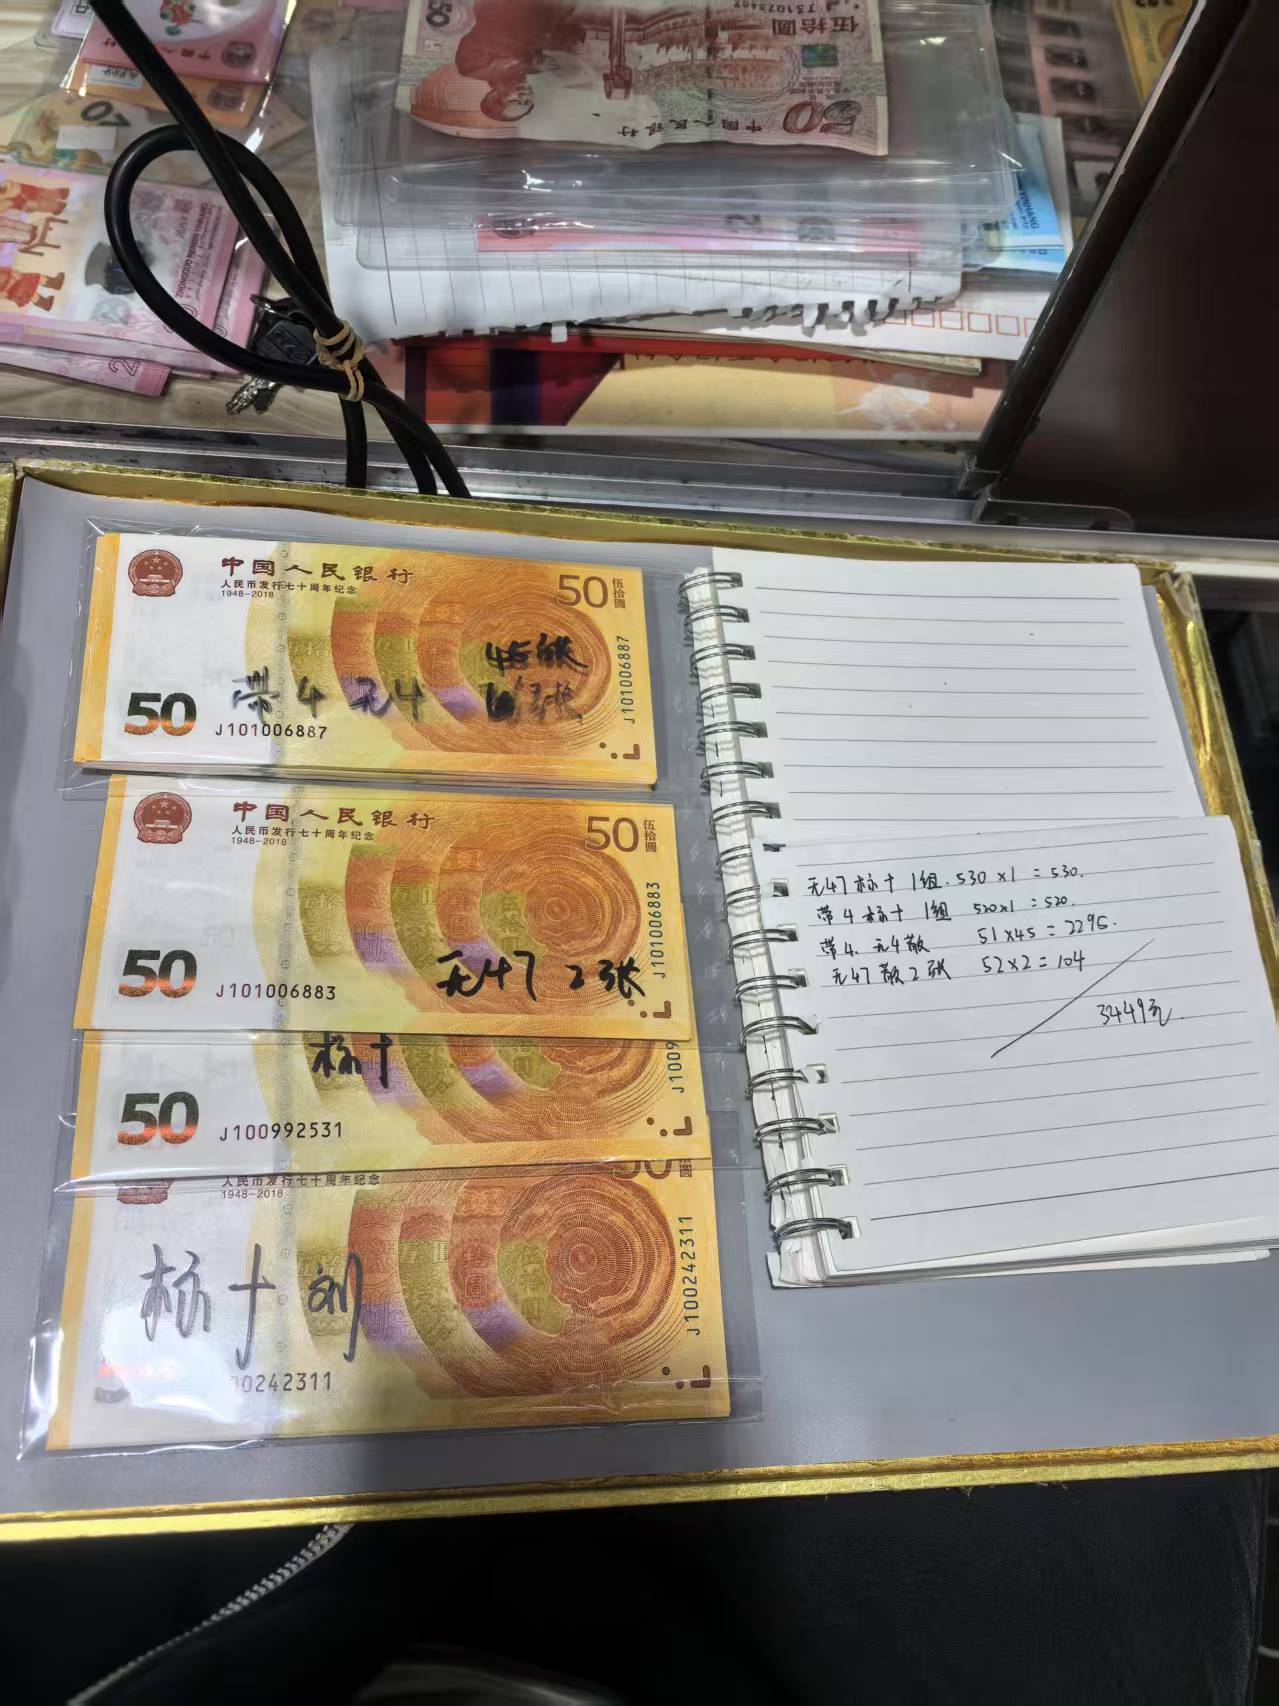 伍拾圓
50
中国人民银行
50
ZHONGGUO RENMIN YINHANG
中国人民银行
人民币发行七十周年纪念
1948-2018
50
伍拾圓
45张
带4无4
50
J101006887
J101006887
中国人民银行
人民币发行七十周年纪念
1948-2018
50
伍拾圓
无47 2张
50
J101006883
J101006883
标十
50
J100992531
J1009
50
人民币发行七十周年纪念
1948-2018
标十刘
00242311
J100242311
无47标十1组.530×1=530.
带4标十1组 520×1=520.
带4.无4散 51×45=2295.
无47散2张 52×2=104
3449元.